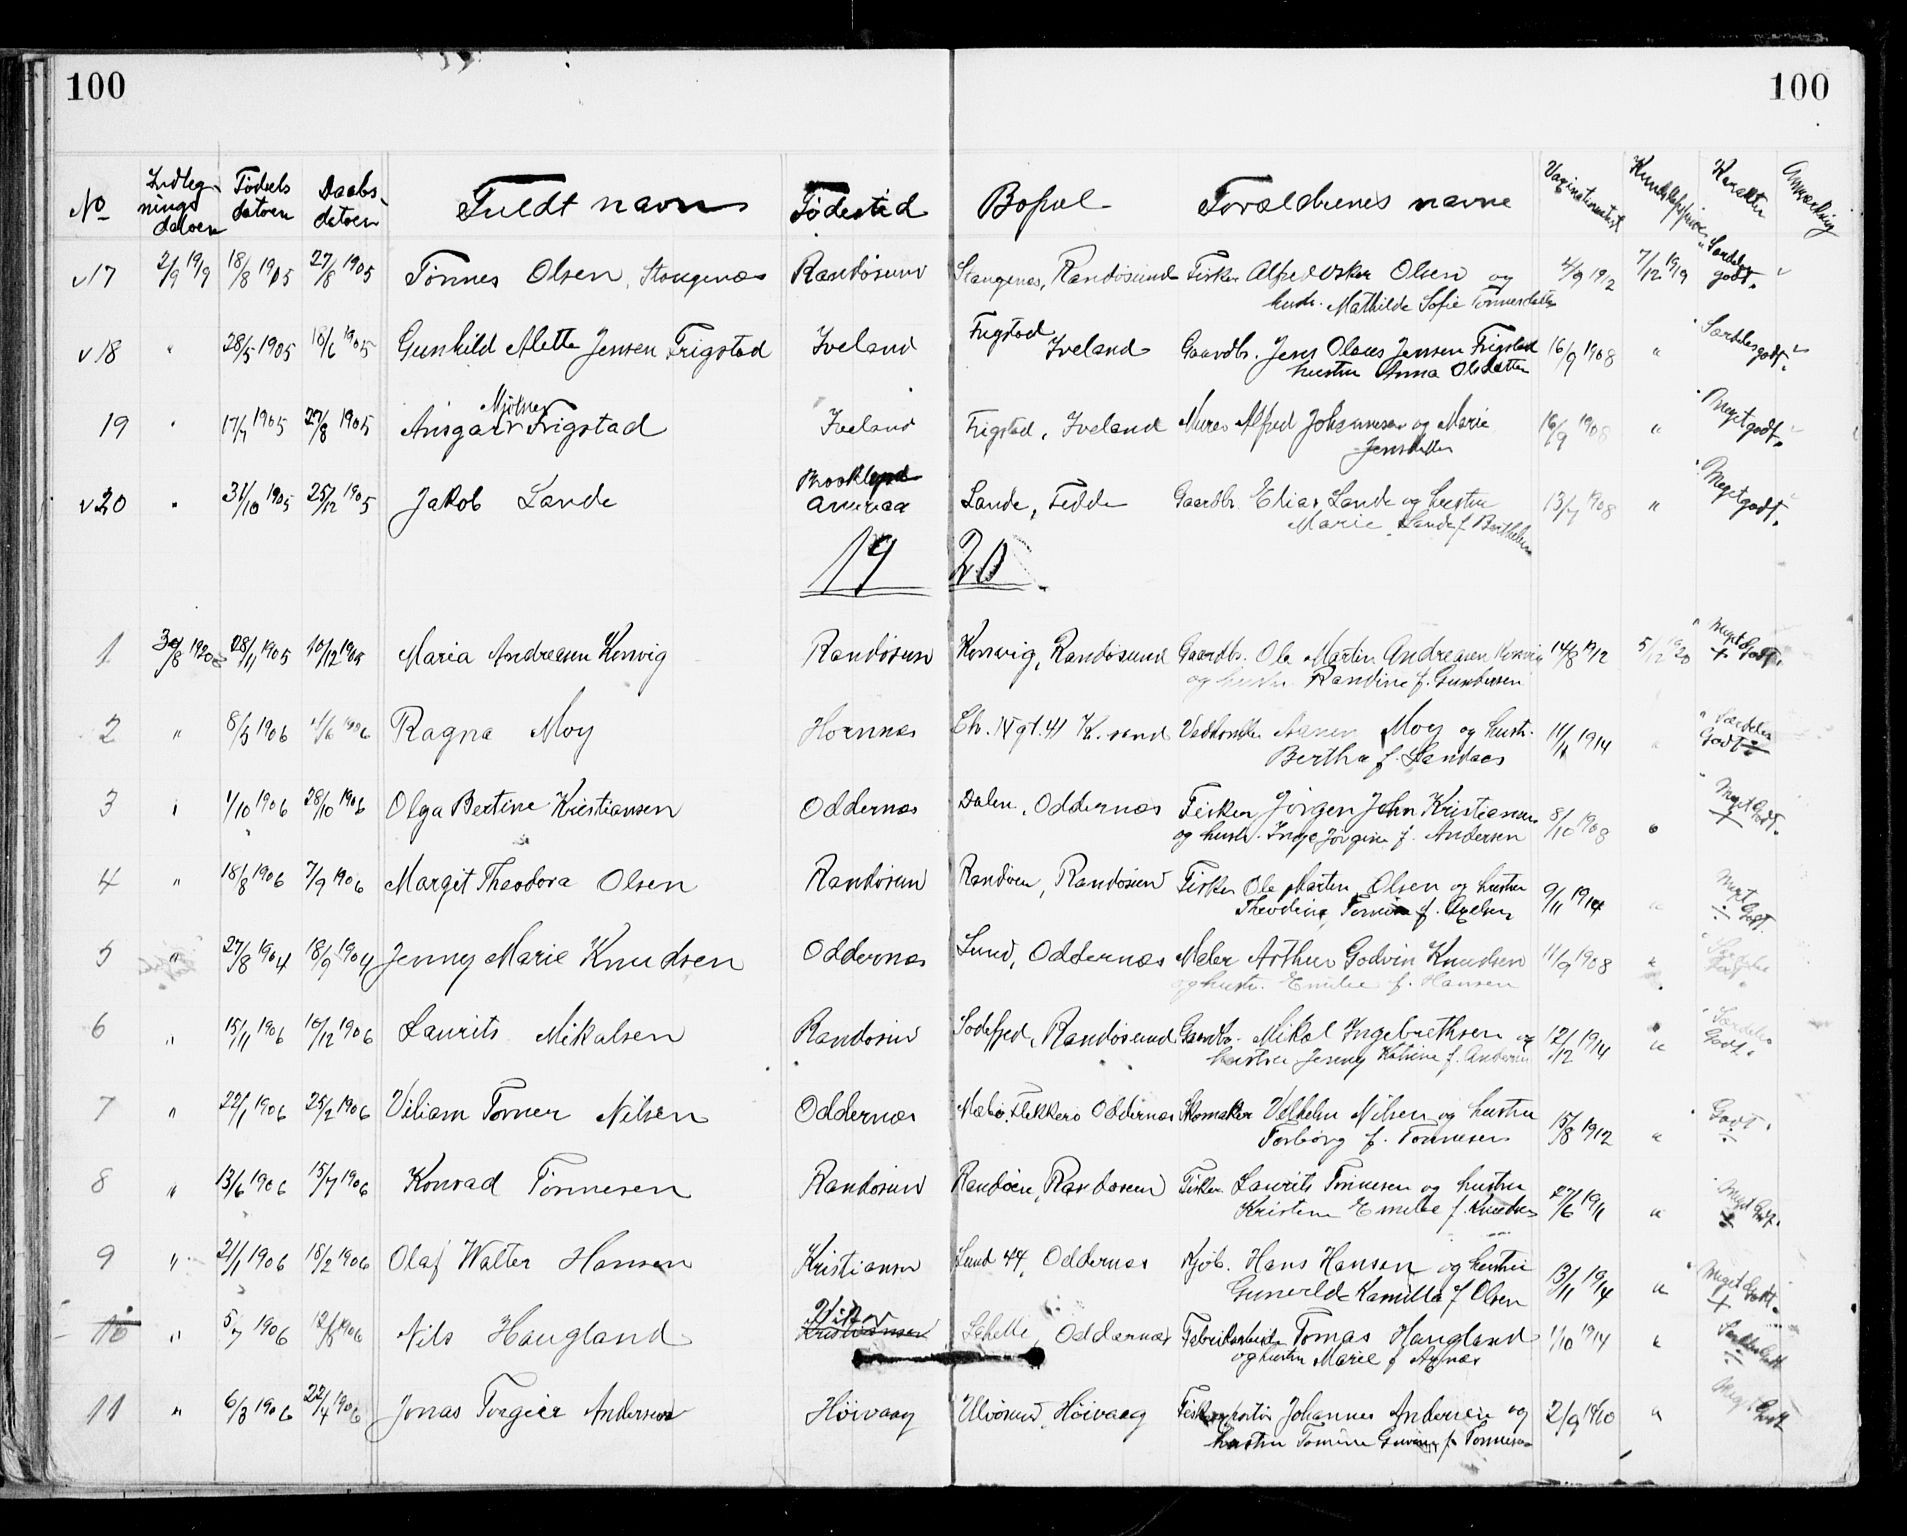 100 100
No Indleg- nings datoen Fødsels datoen Daabs- datoen Fuldt navn Fødested Bopæl Forældrenes navne Vaxinationsattest Karakter Anmærkning
v17 2/9 1919 18/8 1905 27/8 1905 Tønnes Olsen, Stangenæs Randøsund Stangenæs, Randøsund Fisker Alfred Oskar Olsen og 4/9 1912 7/12 1919 Særdeles godt.
hustr. Mathilde Sofie Tønnesdatter
v18 " 28/5 1905 18/6 1905 Gunhild Alette Jensen Frigstad Iveland Frigstad Iveland Gaardbr. Jens Olaus Jensen Frigstad 16/9 1908 " Særdeles godt.
hustru Anna Olsdatter
19 " 17/7 1905 27/8 1905 Ansgar Mjølner Frigstad Iveland Frigstad, Iveland Murer Alfred Johannesen og Marie 16/9 1908 " Meget godt.
Jensdatter
v20 " 31/10 1905 25/12 1905 Jakob Lande Brooklyn America Lande, Fedde Gaardbr. Elias Lande og hustru 13/7 1908 " Meget godt.
Marie Lande f. Berthelsen
19 20
1 30/8 1920 28/11 1905 10/12 1905 Maria Andreasen Korsvig Randøsun Korsvig, Randøsund Gaardbr. Ole Martin Andreasen Korsvig 14/8 1912 5/12 1920 Meget Godt.
og hustru Randine f. Gundersen
2 " 8/3 1906 4/6 1906 Ragna Moy Hornnes IV gt. 41 K. sand Vedhandler Moy og hustr. 11/11 1914 " Særdeles Godt
Bertha f. Landaas
3 " 1/10 1906 28/10 1906 Olga Bertine Kristiansen Oddernæs Dalen, Oddernæs Fisker Jørgen John Kristiansen 8/10 1908 " Meget Godt.
og hustr. Inge Jørgine f. Andersen
4 " 18/8 1906 7/9 1906 Margit Theodora Olsen Randøsun Randøen, Randøsund Fisker Ole Martin Olsen og hustru 9/11 1914 " Meget Godt.
Theodine f. Axelsen
5 " 27/8 1904 18/9 1904 Jenny Marie Knudsen Oddernæs Lund, Oddernæs Maler Arthur Godvin Knudsen 11/9 1908 "
og hustr. Emilie f. Hansen
6 " 15/11 1906 16/12 1906 Laurits Mikalsen Randøsun Randøsund Gaardbr. Mikal Ingebrethsen og 12/12 1914 " Særdeles Godt.
hustru Jenny Katrine f. Andersen
7 " 22/1 1906 25/2 1906 Viliam Torner Nilsen Oddernæs Mæbø, Flekkerø Oddernæs Skomaker Vilhelm Nilsen og hustru 15/8 1912 " Godt.
Torborg f. Tønnesen
8 " 13/6 1906 15/7 1906 Konrad Tønnesen Randøsund Randøen, Randøsund Fisker Laurits Tønnesen og hustru 27/6 1911 " Meget Godt.
Kristine Emilie f. Knudsen
9 " 21/1 1906 18/2 1906 Olaf Walter Hansen Kristiansn Lund 44, Oddernæs Kjøb. Hans Hansen og hustru 13/11 1914 " Meget Godt.
Gunvalda Kamilla f. Olsen
10 " 5/7 1906 12/8 1906 Nils Haugland Kristiansen Oddernæs Fabrikarbeider Tomas Haugland 1/10 1914 " Særdeles Godt
og hustru Marie f. Agnæs
11 " 6/3 1906 22/4 1906 Jonas Torgier Andersen Høivaag Ulvøsund, Høivaag Johannes Andersen og 2/9 1910 " Meget Godt
hustru Tomine f. Tønnesen